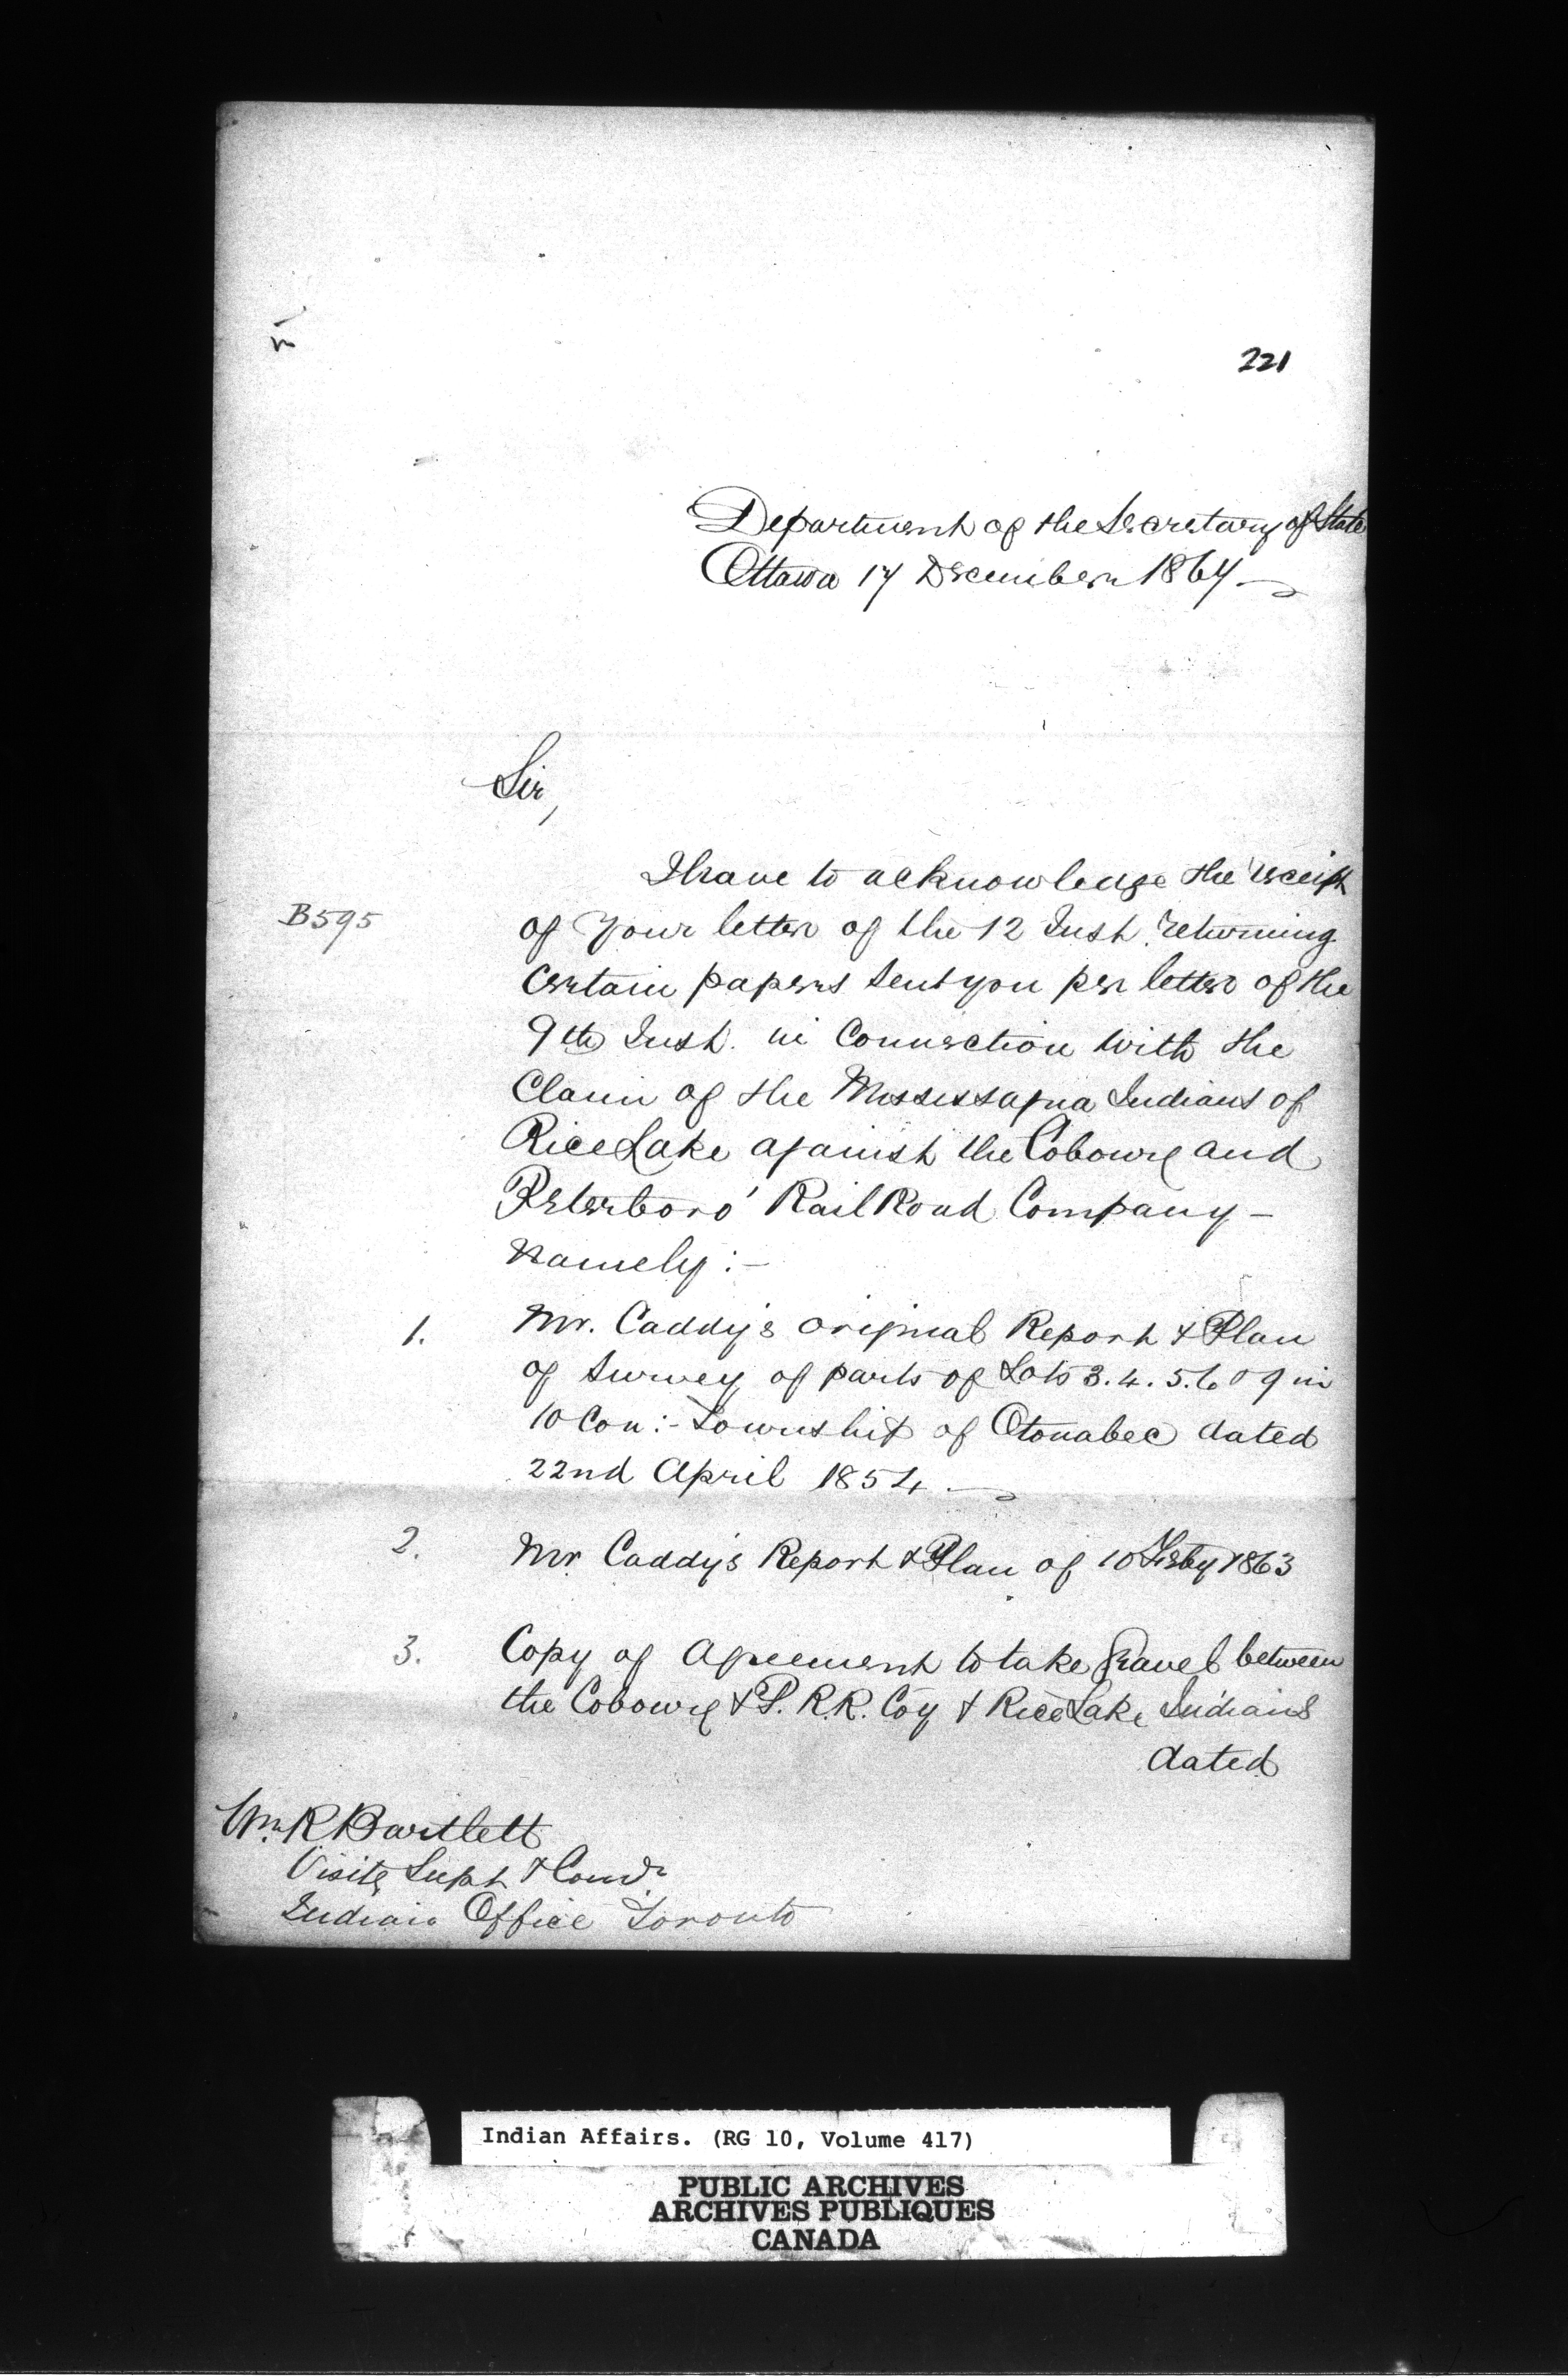 221
Department of the Secretary of State
Ottawa 17 December 1867
Sir,
I have to acknowledge the receipt
B595 of your letter of the 12 Inst. returning
Certain papers sent you per letter of the
9th Inst. in Connection with the
Claim of the Mississagua Indians of
Rice Lake against the Cobourg and
Peterboro' Rail Road Company –
Namely :–
1. Mr. Caddy's original Report & Plan
of Survey of parts of Lots 3. 4. 5. 6 9 in
10 Con :– Township of Otonabee dated
22nd April 1854
2. Mr. Caddy's Report & Plan of 10 Feby 1863
3. Copy of Agreement to take Gravel between
the Cobourg & P. R. R. Coy & Rice Lake Indians
dated
Wm. R Bartlett
Visitg Supt & Comr
Indian Office Toronto
Indian Affairs. (RG 10, Volume 417)
PUBLIC ARCHIVES
ARCHIVES PUBLIQUES
CANADA